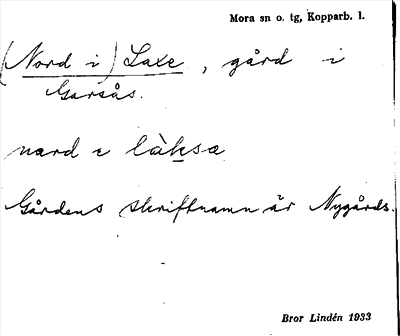 Mora sn o. tg, Kopparb. l.
(Nord i) Laxe, gård i
Garsås.
nard ɛ làksa
Gårdens skriftnamn är Nygårds.
Bror Lindén 1933